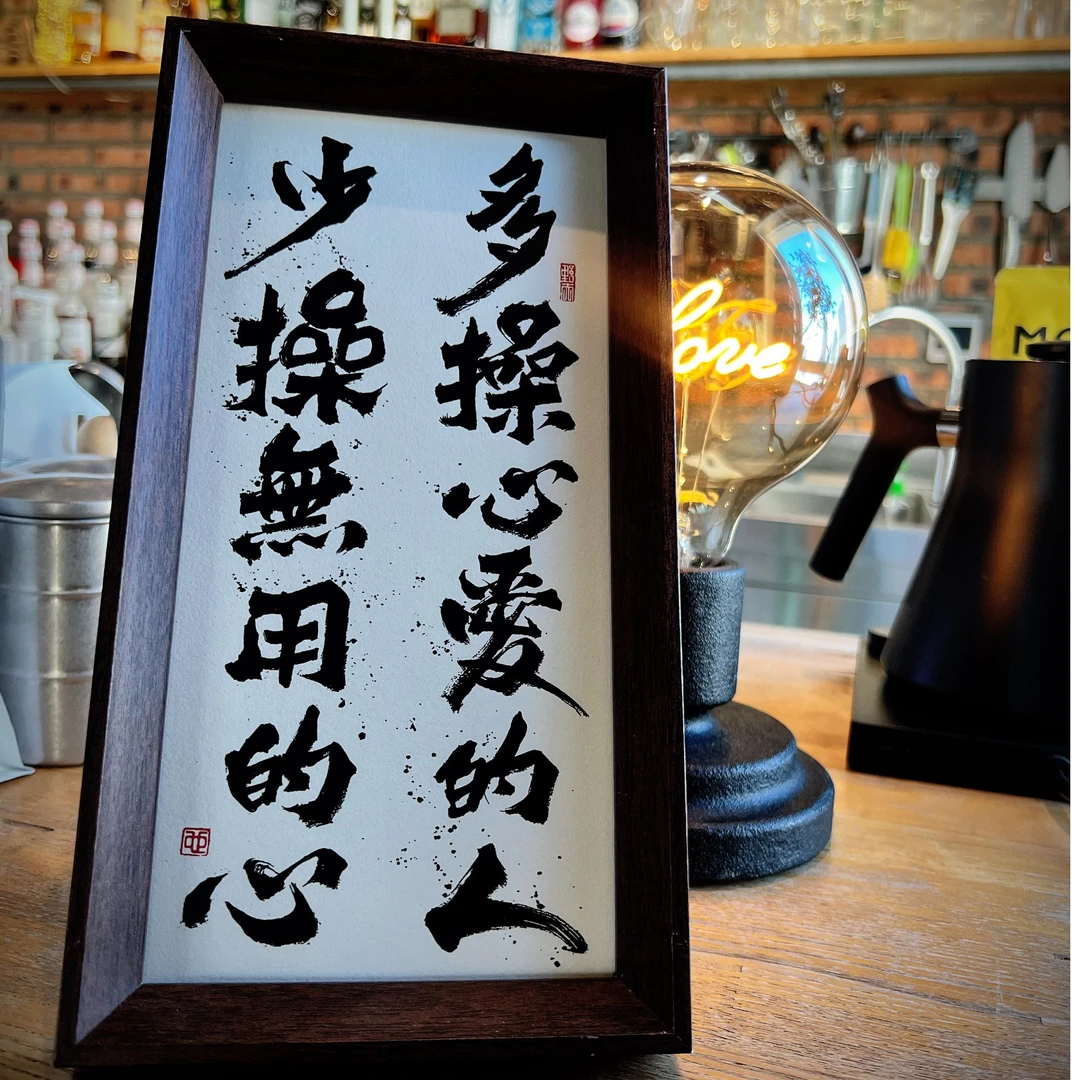 多操心愛的人
少操無用的心
love
MO